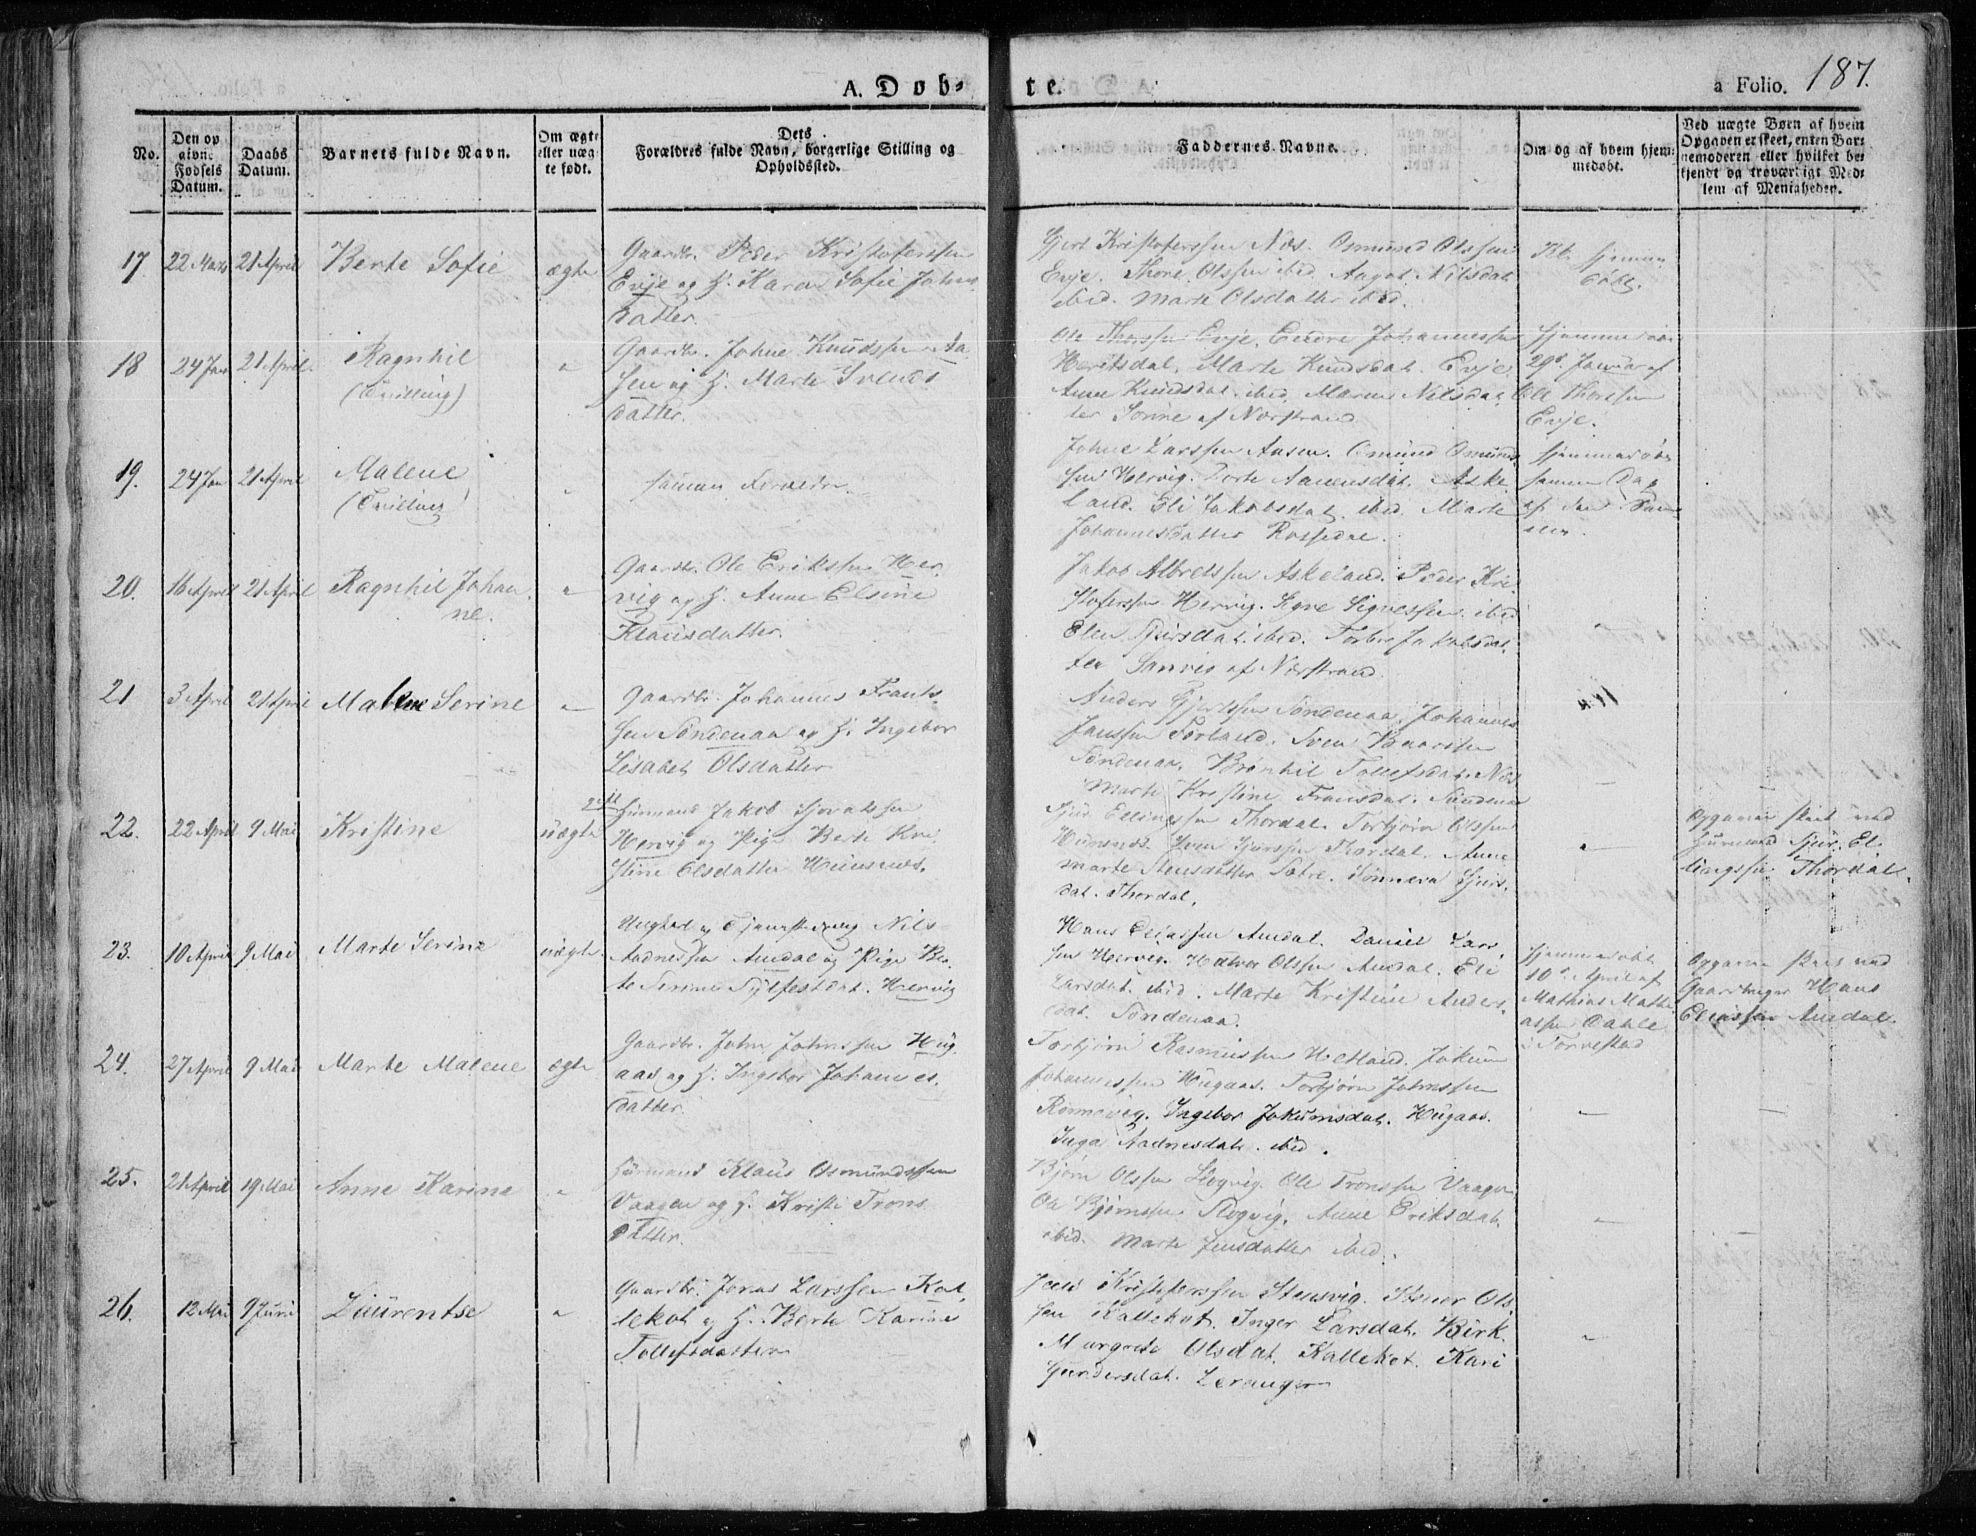 A. Døb-
te.
a Folio. 187.
No.
Den op
givne
Fødsels
Datum.
Daabs
Datum.
Barnets fulde Navn.
Om ægte
eller uæg-
te født.
Dets
Forældres fulde Navn, borgerlige Stilling og
Opholdssted.
Faddernes Navne.
Om og af hvem hjem-
medøbt.
Ved uægte Børn af hvem
Opgaven er skeet, enten Bar-
nemoderen eller hvilket be-
kjendt og troværdigt Med-
lem af Menigheden.
17 22 Marts 21 April Berte Sofie ægte
Gaardbr. Peder Kristofersen
Evje og H. Karen Sofie Johns
datter.
Gjert Kristofersen Næs. Osmund Olssen
Evje. Thore Olssen ibid. Aagot Nilsdat.
ibid. Marte Olsdatter ibid.
hjemme
døbt.
18 24 Jan 21 April Ragnhil
(Tvilling)
"
Gaardbr. Johne Knudssen Aa
sen og H. Marte Svends
datter.
Ole Thorssen Evje. Endre Johannessen
Marte Knudsdat. Evje
Anne Knudsdat. ibid. Maren Nilsdat
ter af Nærstrand
hjemmedøbt
29d Januar af
Ole Thorssen
Evje.
19. 24 Jan 21 April Malene
(Tvilling)
"
samme Forældre.
Johne Larssen Aasen. Omund Omund
sen Hervig. Dorte Aanensdat. Aske
land. Eli Jakobsdat. ibid. Marte
Johannesdatter Rossedal.
hjemmedøbt
samme Dag
af den Sam
me.
20. 16 April 21 April Ragnhil Johan
ne.
"
Gaardbr. Ole Erikssen Her
vig og H. Anne Elsine
Klausdatter.
Jakob Albretssen Askeland. Peder Kri
stoferssen Hervig. Sigvessen ibid
Elen Sjursdat. ibid. Torbor Jakobsdat
ter Sanvig af Nærstrand.
"
21 3 April 21 April Malene Serine "
Gaardbr. Johannes Frants
sen Søndenaa og H. Ingebor
Lisabet Olsdatter
Anders Gjertssen Søndenaa. Johannes
Janssen Førland. Sven Baardsen
Søndenaa. Brønhil Tollefsdat. Næs
Marte Kristine Fransdat. Søndenaa
22. 22 April 9 Mai Kristine uægte
Huusmand Jakob Sjovatssen
Hervig og Pige Berte Kri
stine Olsdatter Huusnes.
Sjur Ellingssen Thordal. Torbjørn Olssen
Huusnes. Iven Sjurssen Thordal. Anne
Marte Stensdatter Sætre. Sønneva Sjurs
dat. Thordal.
"
Opgaven skeet ved
Huusmand Sjur El
lingssen Thordal.
23. 10 April 9 Mai Marte Serine uægte
Ungkarl og Tjenestedreng Nils
Aadnessen Amdal og Pige Be
te Serine Sylfestdat. Hervig
Hans Eliassen Amdal. Daniel Lars
sen Hervig. Halvor Olssen Amdal. Eli
Larsdat. ibid. Marte Kristine Anders
dat. Søndenaa.
hjemmedøbt
10d April af
Mathias Mathi
assen Dahle
i Torvestad
Opgaven skeet ved
Gaardbruger Hans
Eliassen Amdal.
24. 27 April 9 Mai Marte Malene ægte
Gaardbr. John Johnssen Hug
aas og H. Ingebor Johannes
datter.
Torbjørn Rasmussen Hetland. Jokum
Johannessen Hugaas. Torbjørn Johnssen
Rønnevig. Ingebor Jokumsdat. Hugaas.
Inga Aadnesdat. ibid.
25. 21 April 19 Mai Anne Karine "
Huusmand Klaus Osmundssen
Vaagen og H. Kristi Trons
datter.
Bjørn Olssen Slogvig. Ole Tronssen Vaagen
Ole Bjørnssen Slogvig. Anne Eriksdat.
ibid. Marte Jensdatter ibid.
26. 12 Mai 9 Juni Laurentse "
Gaardbr. Jonas Larssen Kal
lekot og H. Berte Karine
Tollefsdatter
Kristoferssen Stensvig. Ols
sen Kallekot. Inger Larsdat. Birk.
Margrete Olsdat. Kallekot. Kari
Gundersdat. Leranger
"